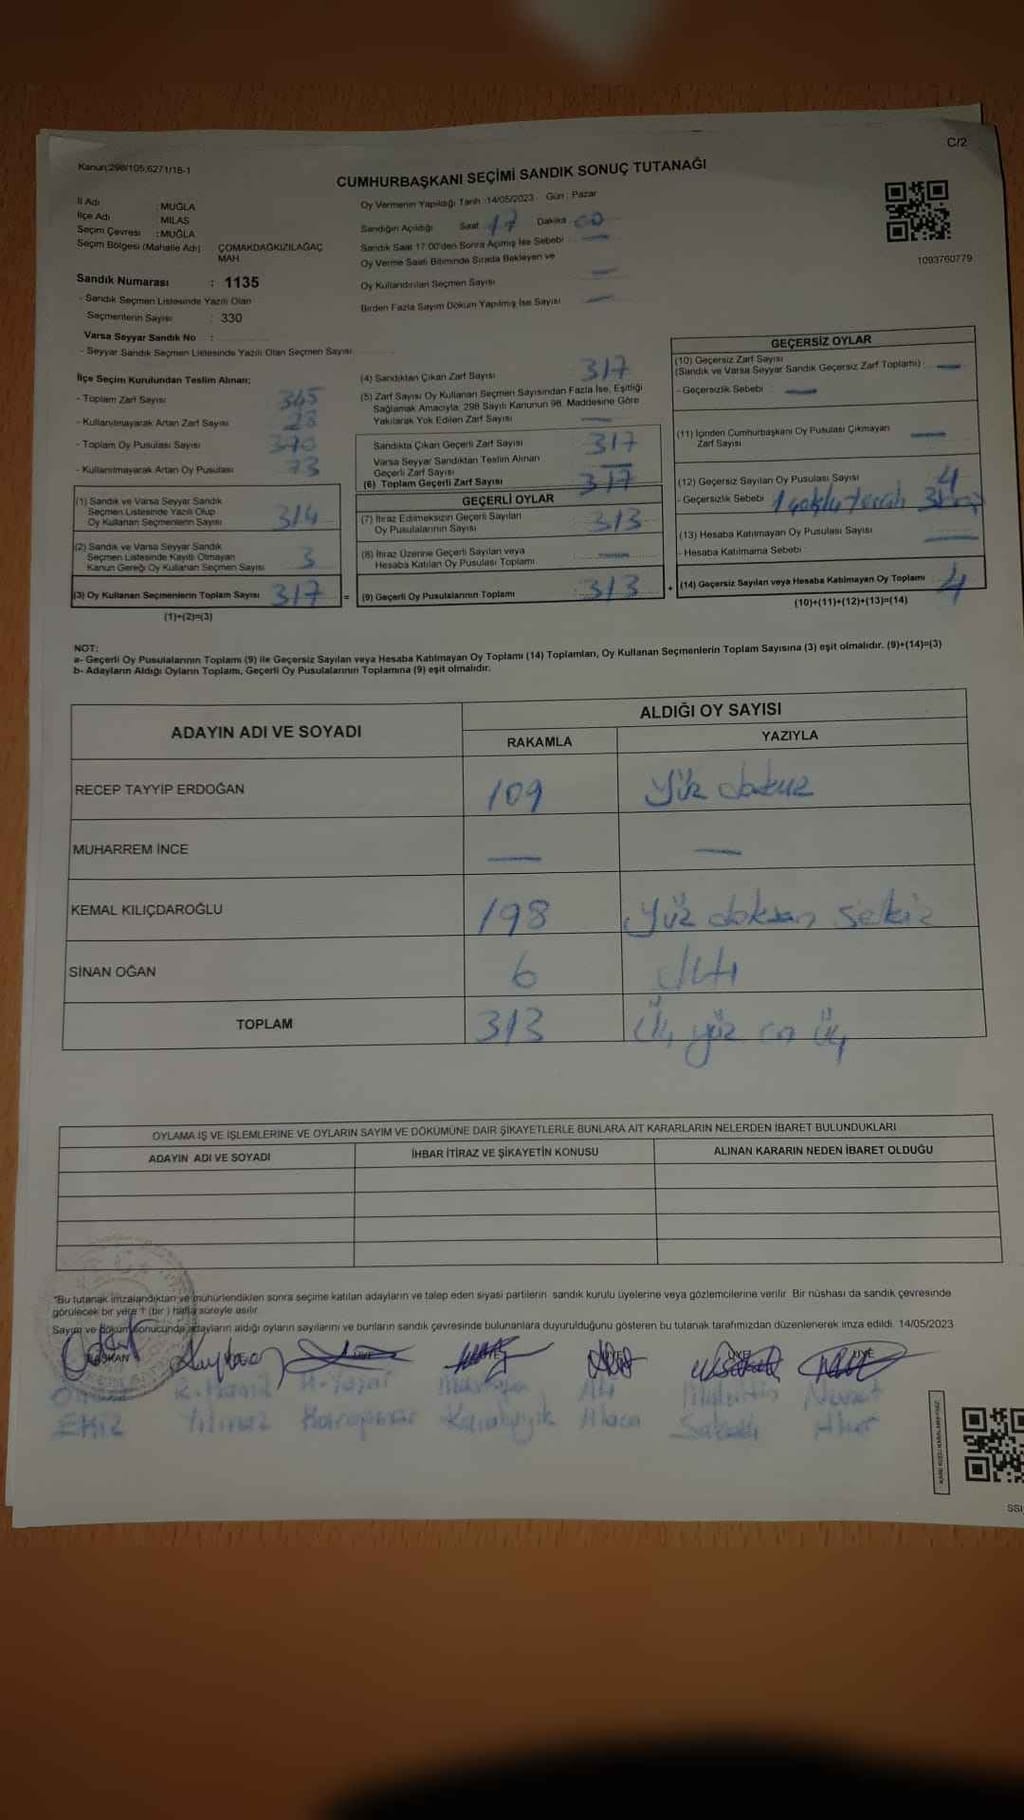 C/2
Kanun:298/105,6271/18-1
CUMHURBAŞKANI SEÇİMİ SANDIK SONUÇ TUTANAĞI
İl Adı : MUĞLA
İlçe Adı : MİLAS
Seçim Çevresi : MUĞLA
Seçim Bölgesi (Mahalle Adı) : ÇOMAKDAĞKIZILAĞAÇ MAH
Sandık Numarası : 1135
- Sandık Seçmen Listesinde Yazılı Olan
Seçmenlerin Sayısı : 330
Varsa Seyyar Sandık No :
- Seyyar Sandık Seçmen Listesinde Yazılı Olan Seçmen Sayısı
Oy Vermenin Yapıldığı Tarih :14/05/2023 Gün : Pazar
Sandığın Açıldığı Saat 17 Dakika 00
Sandık Saat 17:00'den Sonra Açılmış İse Sebebi —
Oy Verme Saati Bitiminde Sırada Bekleyen ve
Oy Kullandırılan Seçmen Sayısı —
Birden Fazla Sayım Döküm Yapılmış İse Sayısı —
1093760779
İlçe Seçim Kurulundan Teslim Alınan:
- Toplam Zarf Sayısı 345
- Kullanılmayarak Artan Zarf Sayısı 28
- Toplam Oy Pusulası Sayısı
- Kullanılmayarak Artan Oy Pusulası 73
(1) Sandık ve Varsa Seyyar Sandık
Seçmen Listesinde Yazılı Olup
Oy Kullanan Seçmenlerin Sayısı 314
(2) Sandık ve Varsa Seyyar Sandık
Seçmen Listesinde Kayıtlı Olmayan
Kanun Gereği Oy Kullanan Seçmen Sayısı 3
(3) Oy Kullanan Seçmenlerin Toplam Sayısı 317 =
(1)+(2)=(3)
(4) Sandıktan Çıkan Zarf Sayısı 317
(5) Zarf Sayısı Oy Kullanan Seçmen Sayısından Fazla İse, Eşitliği
Sağlamak Amacıyla; 298 Sayılı Kanunun 98. Maddesine Göre
Yakılarak Yok Edilen Zarf Sayısı —
Sandıkta Çıkan Geçerli Zarf Sayısı 317
Varsa Seyyar Sandıktan Teslim Alınan
Geçerli Zarf Sayısı —
(6) Toplam Geçerli Zarf Sayısı 317
GEÇERLİ OYLAR
(7) İtiraz Edilmeksizin Geçerli Sayılan
Oy Pusulalarının Sayısı 313
(8) İtiraz Üzerine Geçerli Sayılan veya
Hesaba Katılan Oy Pusulası Toplamı —
(9) Geçerli Oy Pusulalarının Toplamı 313 +
GEÇERSİZ OYLAR
(10) Geçersiz Zarf Sayısı
(Sandık ve Varsa Seyyar Sandık Geçersiz Zarf Toplamı) : —
- Geçersizlik Sebebi —
(11) İçinden Cumhurbaşkanı Oy Pusulası Çıkmayan
Zarf Sayısı —
(12) Geçersiz Sayılan Oy Pusulası Sayısı 4
- Geçersizlik Sebebi 1 çoklu tercih
(13) Hesaba Katılmayan Oy Pusulası Sayısı —
- Hesaba Katılmama Sebebi
(14) Geçersiz Sayılan veya Hesaba Katılmayan Oy Toplamı 4
(10)+(11)+(12)+(13)=(14)
NOT:
a- Geçerli Oy Pusulalarının Toplamı (9) ile Geçersiz Sayılan veya Hesaba Katılmayan Oy Toplamı (14) Toplamları, Oy Kullanan Seçmenlerin Toplam Sayısına (3) eşit olmalıdır. (9)+(14)=(3)
b- Adayların Aldığı Oyların Toplamı, Geçerli Oy Pusulalarının Toplamına (9) eşit olmalıdır.
ADAYIN ADI VE SOYADI
ALDIĞI OY SAYISI
RAKAMLA YAZIYLA
RECEP TAYYİP ERDOĞAN 109 Yüz dokuz
MUHARREM İNCE — —
KEMAL KILIÇDAROĞLU 198 Yüz doksan sekiz
SİNAN OĞAN 6 Altı
TOPLAM 313 Üç yüz on üç
OYLAMA İŞ VE İŞLEMLERİNE VE OYLARIN SAYIM VE DÖKÜMÜNE DAİR ŞİKAYETLERLE BUNLARA AİT KARARLARIN NELERDEN İBARET BULUNDUKLARI
ADAYIN ADI VE SOYADI İHBAR İTİRAZ VE ŞİKAYETİN KONUSU ALINAN KARARIN NEDEN İBARET OLDUĞU
*Bu tutanak imzalandıktan ve mühürlendikten sonra seçime katılan adayların ve talep eden siyasi partilerin sandık kurulu üyelerine veya gözlemcilerine verilir. Bir nüshası da sandık çevresinde
görülecek bir yere 1 (bir) hafta süreyle asılır.
Sayım ve döküm sonucunda adayların aldığı oyların sayılarını ve bunların sandık çevresinde bulunanlara duyurulduğunu gösteren bu tutanak tarafımızdan düzenlenerek imza edildi. 14/05/2023
BAŞKAN ÜYE ÜYE ÜYE
Ali
Yılmaz Alaca